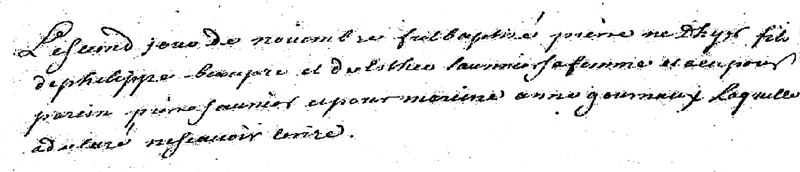 Lesecond jour de novembre fut baptisé pierre né Dhyer fils
de philippe beaupre et de Esther saunier sa femme et a eu pour
parein pierre saunier et pour mareine anne gourneaux Laquelle
a declaré ne scavoir ecrire.